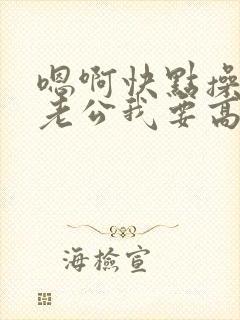 嗯啊快點操
老公我要高
海檢宣